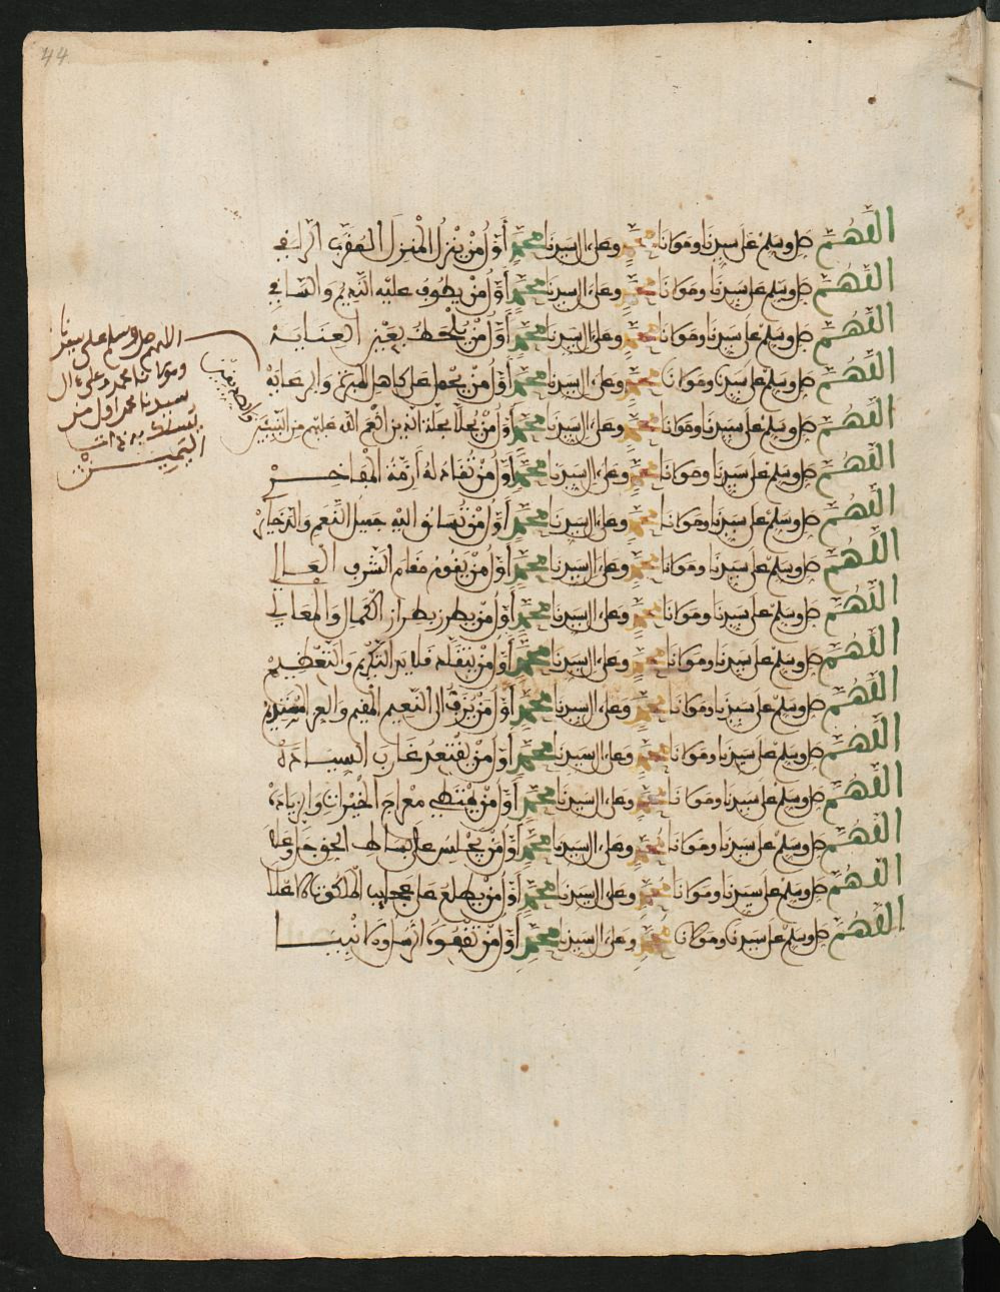 44
اللهم صل وسلم على سيدنا ومولانا محمد وعلى ءال سيدنا محمد أول من ينزل المنزل المقرب
اللهم صل وسلم على سيدنا ومولانا محمد وعلى ءال سيدنا محمد أول من يطوف عليه النديم والساقي
اللهم صل وسلم على سيدنا ومولانا محمد وعلى ءال سيدنا محمد أول من يلحظ بعين العناية
اللهم صل وسلم على سيدنا ومولانا محمد وعلى ءال سيدنا محمد أول من يحمل على كاهل المبرة والرعاية
اللهم صل وسلم على سيدنا ومولانا محمد وعلى ءال سيدنا محمد أول من يحلا بحلة الذين انعم الله عليهم من النبيين
والصديقين
اللهم صل وسلم على سيدنا ومولانا محمد وعلى ءال سيدنا محمد أول من تقاد له أزمة المفاخر
اللهم صل وسلم على سيدنا ومولانا محمد وعلى ءال سيدنا محمد أول من تساق اليه جميل النعم
اللهم صل وسلم على سيدنا ومولانا محمد وعلى ءال سيدنا محمد أول من يقوم مقام الشرف العال
اللهم صل وسلم على سيدنا ومولانا محمد وعلى ءال سيدنا محمد أول من يطرز بطراز الكمال والمعالي
اللهم صل وسلم على سيدنا ومولانا محمد وعلى ءال سيدنا محمد أول من يتقلد قلايد التكريم والتعظيم
اللهم صل وسلم على سيدنا ومولانا محمد وعلى ءال سيدنا محمد أول من يزف الى النعيم المقيم والعز
اللهم صل وسلم على سيدنا ومولانا محمد وعلى ءال سيدنا محمد أول من يقتعد غارب السيادة
اللهم صل وسلم على سيدنا ومولانا محمد وعلى ءال سيدنا محمد أول من يمتطي معراج الخيرات والزيادة
اللهم صل وسلم على سيدنا ومولانا محمد وعلى ءال سيدنا محمد أول من يجلس على بساط الحق جل وعلا
اللهم صل وسلم على سيدنا ومولانا محمد وعلى ءال سيدنا محمد أول من يطلع على عجايب الملكوت الاعلا
اللهم صل وسلم على سيدنا ومولانا محمد وعلى ءال سيدنا محمد أول من تقفوه
اللهم صل وسلم على سيدنا
ومولانا محمد وعلى ءال
سيدنا محمد اول من
يسلك به ذات
اليمين